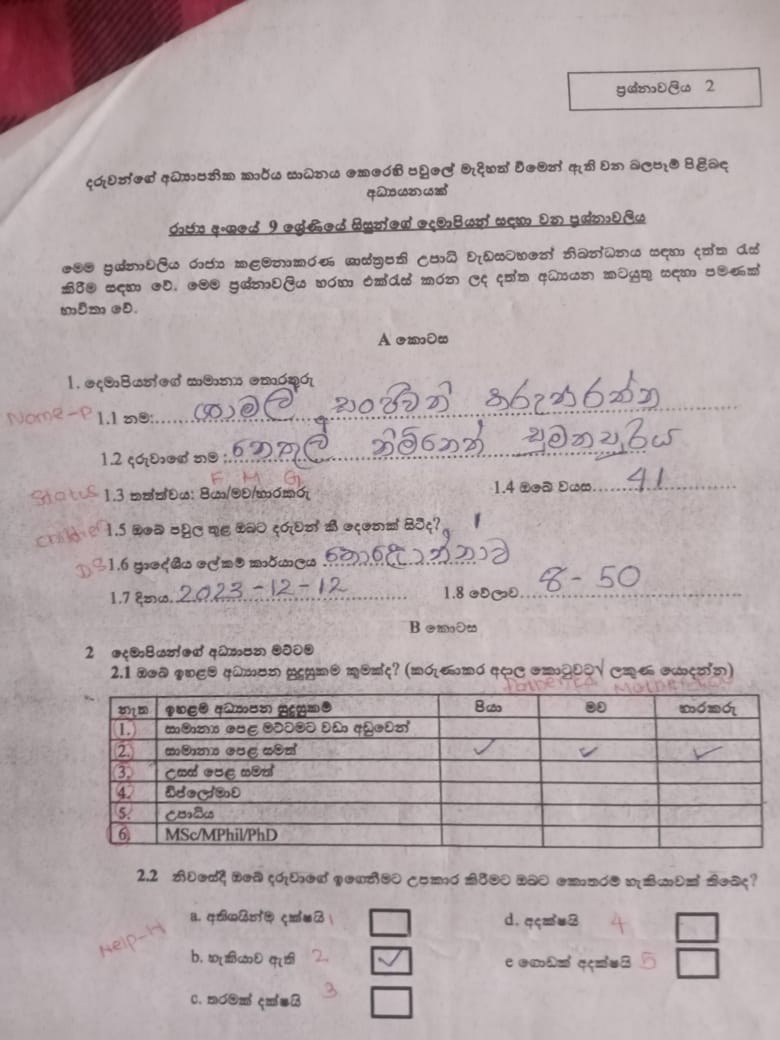 ප්‍රශ්නාවලිය 2
දරුවන්ගේ අධ්‍යාපනික කාර්ය සාධනය කෙරෙහි පවුලේ මැදිහත් වීමෙන් ඇති වන බලපෑම් පිළිබඳ
අධ්‍යයනයක්
රාජ්‍ය අංශයේ 9 ශ්‍රේණියේ සිසුන්ගේ දෙමාපියන් සඳහා වන ප්‍රශ්නාවලිය
මෙම ප්‍රශ්නාවලිය රාජ්‍ය කළමනාකරණ ශාස්ත්‍රපති උපාධි වැඩසටහනේ නිබන්ධනය සඳහා දත්ත රැස්
කිරීම සඳහා වේ. මෙම ප්‍රශ්නාවලිය හරහා එක්රැස් කරන ලද දත්ත අධ්‍යයන කටයුතු සඳහා පමණක්
භාවිතා වේ.
A කොටස
1. දෙමාපියන්ගේ සාමාන්‍ය තොරතුරු
Name-P 1.1 නම:.... ශ්‍යාමලී සංජීවනී කරුනාරත්න
1.2 දරුවාගේ නම : නෙතුල් නිම්නෙත් සුමනසූරිය
F M G
Status 1.3 තත්ත්වය: පියා/මව/භාරකරු 1.4 ඔබේ වයස..... 41
Children 1.5 ඔබේ පවුල තුළ ඔබට දරුවන් කී දෙනෙක් සිටීද? 1
DS 1.6 ප්‍රාදේශීය ලේකම් කාර්යාලය
1.7 දිනය. 2023-12-12 1.8 වේලාව. 8-50
B කොටස
2 දෙමාපියන්ගේ අධ්‍යාපන මට්ටම
2.1 ඔබේ ඉහළම අධ්‍යාපන සුදුසුකම කුමක්ද? (කරුණාකර අදාල කොටුවට √ ලකුණ යොදන්න)
තැන ඉහළම අධ්‍යාපන සුදුසුකම පියා මව භාරකරු
1. සාමාන්‍ය පෙළ මට්ටමට වඩා අඩුවෙන්
2. සාමාන්‍ය පෙළ සමත් ✓ ✓ ✓
3. උසස් පෙළ සමත්
4. ඩිප්ලෝමාව
5. උපාධිය
6. MSc/MPhil/PhD
2.2 නිවසේදී ඔබේ දරුවාගේ ඉගෙනීමට උපකාර කිරීමට ඔබට කොතරම් හැකියාවක් තිබේද?
a. අතිශයින්ම දක්ෂයි 1 d. අදක්ෂයි 4
Help-H b. හැකියාව ඇති 2 ✓ e ගොඩක් අදක්ෂයි 5
c. තරමක් දක්ෂයි 3